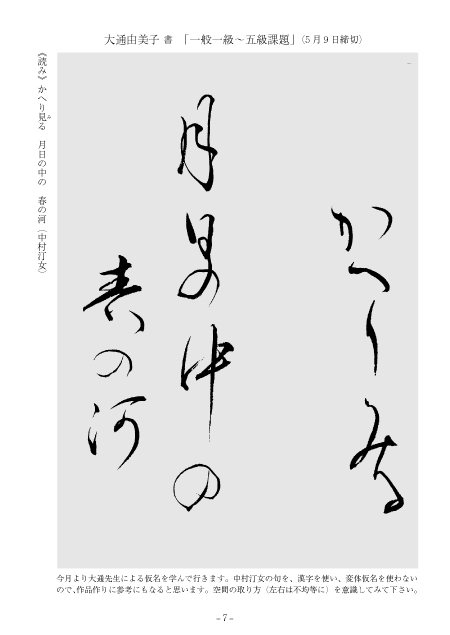 大通由美子 書 「一般一級～五級課題」(5月9日締切)
《読み》かへり見る 月日の中の 春の河（中村汀女）
かへり見る
月日の中の
春の河
今月より大通先生による仮名を学んで行きます。中村汀女の句を、漢字を使い、変体仮名を使わない
ので、作品作りに参考にもなると思います。空間の取り方（左右は不均等に）を意識してみて下さい。
- 7 -